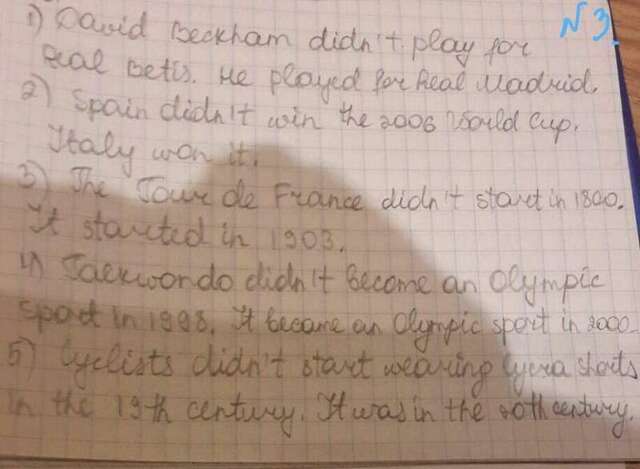 N 3.
1) David Beckham didn't play for
Real Betis. He played for Real Madrid.
2) Spain didn't win the 2006 World Cup.
Italy won it.
3) The Tour de France didn't start in 1800.
It started in 1903.
4) Taekwondo didn't become an Olympic
sport in 1998. It became an Olympic sport in 2000.
5) Cyclists didn't start wearing lycra shorts
in the 19th century. It was in the 20th century.